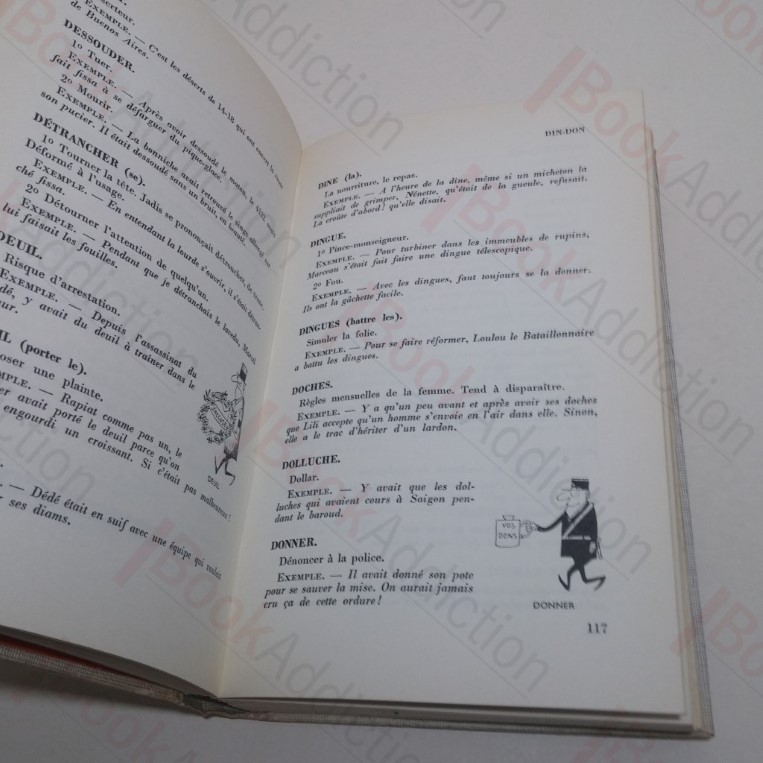 DESSOUDER.
1º Tuer.
EXEMPLE. — Après avoir dessoudé le motard, le
fait fissa à se défarguer du
2º Mourir.
EXEMPLE. — La
son pucier. Il était dessoudé sans un bruit, en
DÉTRANCHER (se).
1º Tourner la tête. Jadis se prononçait détroncher, de
Déformé à l'usage.
EXEMPLE. — En entendant la lourde s'ouvrir, il s'était
ché fissa.
2º Détourner l'attention de quelqu'un.
EXEMPLE. — Pendant que je détranchais le
lui faisait les fouilles.
DEUIL.
Risque d'arrestation.
EXEMPLE. — Depuis l'assassinat du
y avait du deuil à traîner dans le
(porter le).
une plainte.
Rapiat comme pas un, le
avait porté le deuil parce qu'on
engourdi un croissant. Si c'était pas malheureux!
DEUIL
Dédé était en suif avec une équipe qui voulait
ses diams.
DIN-DON
DINE (la).
La nourriture, le repas.
EXEMPLE. — A l'heure de la dîne, même si un micheton la
suppliait de grimper, Nénette, qu'était de la gueule, refusait.
La croûte d'abord! qu'elle disait.
DINGUE.
1º Pince-monseigneur.
EXEMPLE. — Pour turbiner dans les immeubles de rupins,
Marceau s'était fait faire une dingue télescopique.
2º Fou.
EXEMPLE. — Avec les dingues, faut toujours se la donner.
Ils ont la gâchette facile.
DINGUES (battre les).
Simuler la folie.
EXEMPLE. — Pour se faire réformer, Loulou le Bataillonnaire
a battu les dingues.
DOCHES.
Règles mensuelles de la femme. Tend à disparaître.
EXEMPLE. — Y a qu'un peu avant et après avoir ses doches
que Lili accepte qu'un homme s'envoie en l'air dans elle. Sinon,
elle a le trac d'hériter d'un lardon.
DOLLUCHE.
Dollar.
EXEMPLE. — Y avait que les dol-
luches qui avaient cours à Saigon pen-
dant le baroud.
DONNER.
Dénoncer à la police.
EXEMPLE. — Il avait donné son pote
pour se sauver la mise. On aurait jamais
cru ça de cette ordure!
VOS
DONS
DONNER
117
BookAddiction